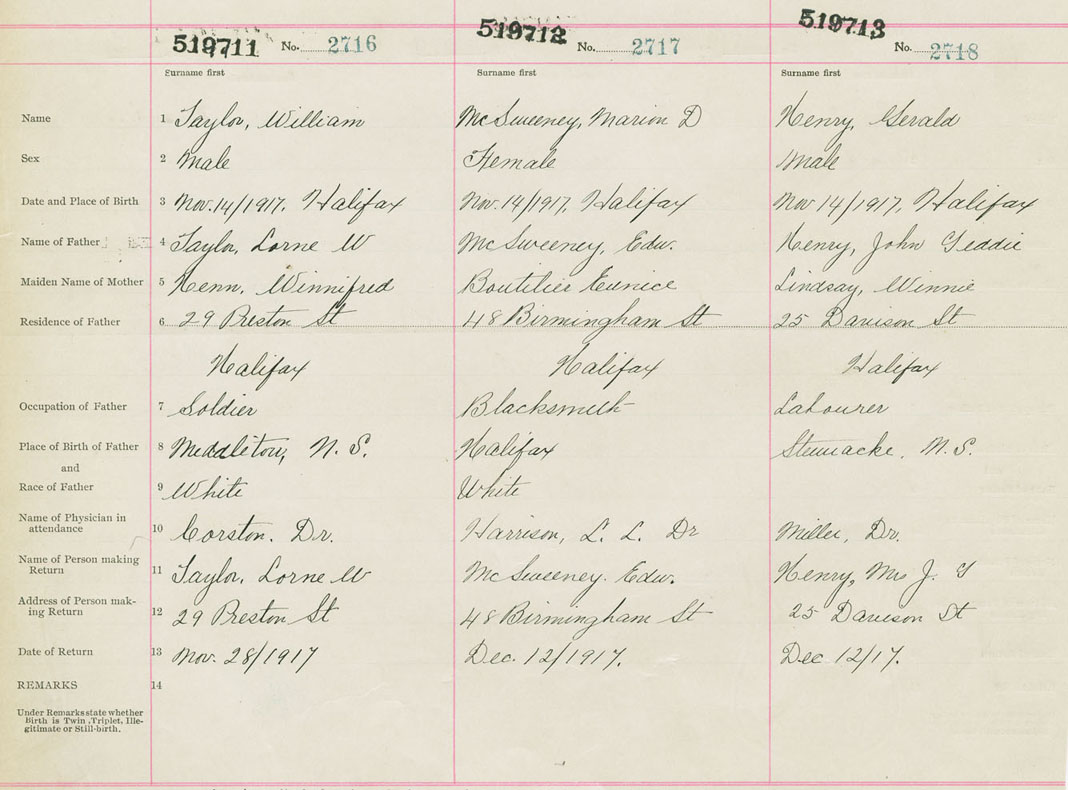 519711 No. 2716 519712 No. 2717 519713 No. 2718
Surname first Surname first Surname first
Name 1 Taylor, William McSweeney, Marion D Henry, Gerald
Sex 2 Male Female Male
Date and Place of Birth 3 Nov. 14/1917, Halifax Nov. 14/1917, Halifax Nov 14/1917, Halifax
Name of Father 4 Taylor, Lorne W McSweeney, Edw. Henry, John Geddie
Maiden Name of Mother 5 Winnifred Boutilier Eunice Lindsay, Winnie
Residence of Father 6 29 Preston St 48 Birmingham St 25 Davison St
Halifax Halifax Halifax
Occupation of Father 7 Soldier Blacksmith Labourer
Place of Birth of Father 8 Middleton, N. S. Halifax Stewiacke, N. S.
and
Race of Father 9 White White
Name of Physician in
attendance 10 Corston. Dr. Harrison, L. L. Dr Miller, Dr.
Name of Person making
Return 11 Taylor, Lorne W McSweeney. Edw. Henry, Mrs J. G
Address of Person mak-
ing Return 12 29 Preston St 48 Birmingham St 25 Davison St
Date of Return 13 Nov. 28/1917 Dec. 12/1917. Dec 12/17.
REMARKS 14
Under Remarks state whether
Birth is Twin, Triplet, Ille-
gitimate or Still-birth.